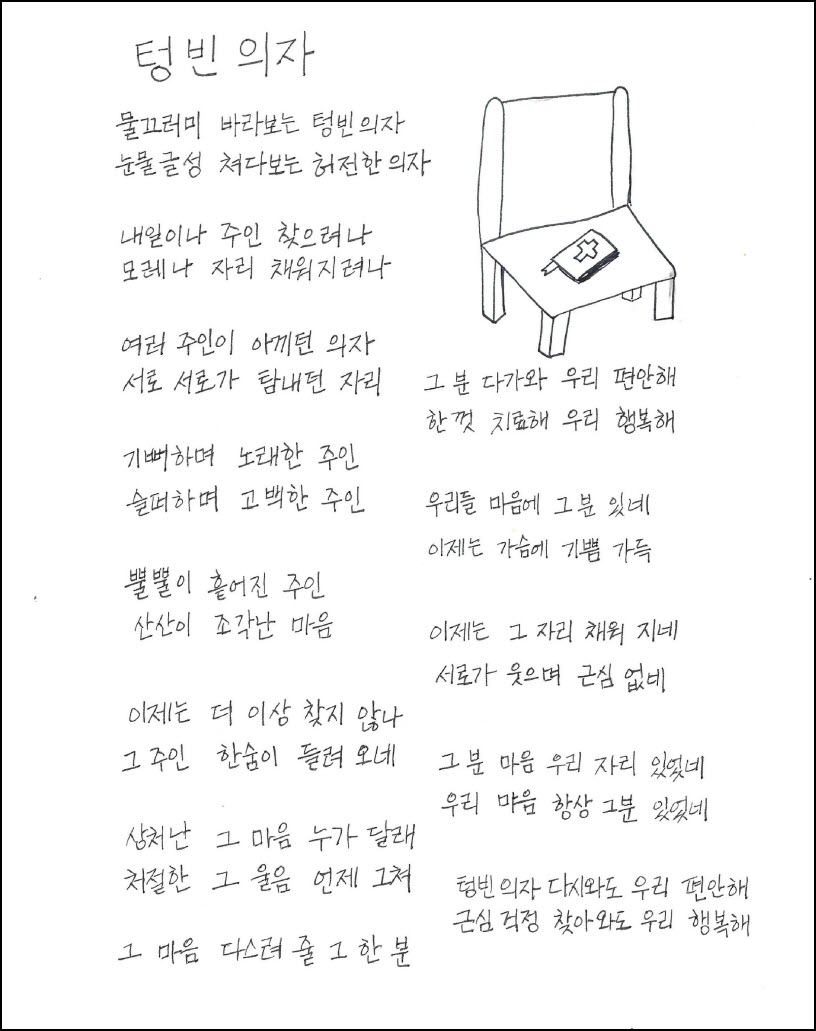 텅빈 의자
물끄러미 바라보는 텅빈의자
눈물글성 쳐다보는 허전한 의자
내일이나 주인 찾으려나
모레나 자리 채워지려나
여러 주인이 아끼던 의자
서로 서로가 탐내던 자리
기뻐하며 노래한 주인
슬퍼하며 고백한 주인
뿔뿔이 흩어진 주인
산산이 조각난 마음
이제는 더 이상 찾지 않나
그 주인 한숨이 들려 오네
상처난 그 마음 누가 달래
처절한 그 울음 언제 그쳐
그 마음 다스려 줄 그 한 분
그 분 다가와 우리 편안해
한껏 치료해 우리 행복해
우리들 마음에 그 분 있네
이제는 가슴에 기쁨 가득
이제는 그 자리 채워 지네
서로가 웃으며 근심 없네
그 분 마음 우리 자리 있었네
우리 먀음 항상 그분 있었네
텅빈의자 다시와도 우리 편안해
근심 걱정 찾아와도 우리 행복해